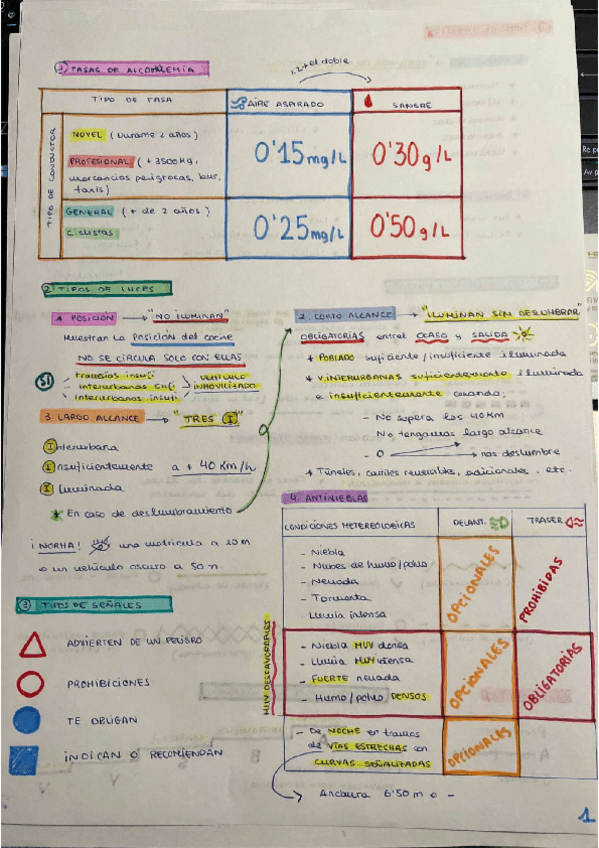 1) TASAS DE ALCOHOLEMIA
x 2 → el doble
TIPO DE TASA
AIRE ASPIRADO
SANGRE
TIPO DE CONDUCTOR
NOVEL (Durante 2 años)
PROFESIONAL ( + 3500 Kg,
mercancias peligrosas, bus,
taxis)
0'15 mg/L
0'30 g/L
GENERAL ( + de 2 años )
Ciclistas
0'25 mg/L
0'50 g/L
2) TIPOS DE LUCES
1. POSICIÓN → "NO ILUMINAN"
Muestran La Posición del coche
NO SE CIRCULA SOLO CON ELLAS
SI
travesias insufi
interurbanas sufi
interurbanas insufi
VEHICULO
INMOVILIZADO
3. LARGO ALCANCE → "TRES I"
Interurbana
Insuficientemente a + 40 Km/h
Iluminada
* En caso de deslumbramiento
¡NORMA! una matricula a 10 m
o un vehículo oscuro a 50 m.
2. CORTO ALCANCE → "ILUMINAN SIN DESLUMBRAR"
OBLIGATORIAS entre OCASO y SALIDA
* POBLADO suficiente / insuficiente iluminada
* V. INTERURBANAS suficientemente iluminada
e insuficientemente cuando:
- No supera los 40 KM
No tengamos largo alcance
- O nos deslumbre
* Túneles, carriles reversibles, adicionales, etc.
4. ANTINIEBLAS
CONDICIONES METEREOLOGICAS
DELANT.
TRASER
- Niebla
- Nubes de humo/polvo
- Nevada
- Tormenta
- Lluvia intensa
OPCIONALES
PROHIBIDAS
MUY DESFAVORABLES
- Niebla MUY densa
- Lluvia MUY intensa
- FUERTE nevada
- Humo/polvo DENSOS
OPCIONALES
OBLIGATORIAS
- De NOCHE en tramos
de VÍAS ESTRECHAS con
CURVAS SEÑALIZADAS
OPCIONALES
Anchura 6'50 m o -
3) TIPOS DE SEÑALES
ADVIERTEN DE UN PELIGRO
PROHIBICIONES
TE OBLIGAN
INDICAN O RECOMIENDAN
1